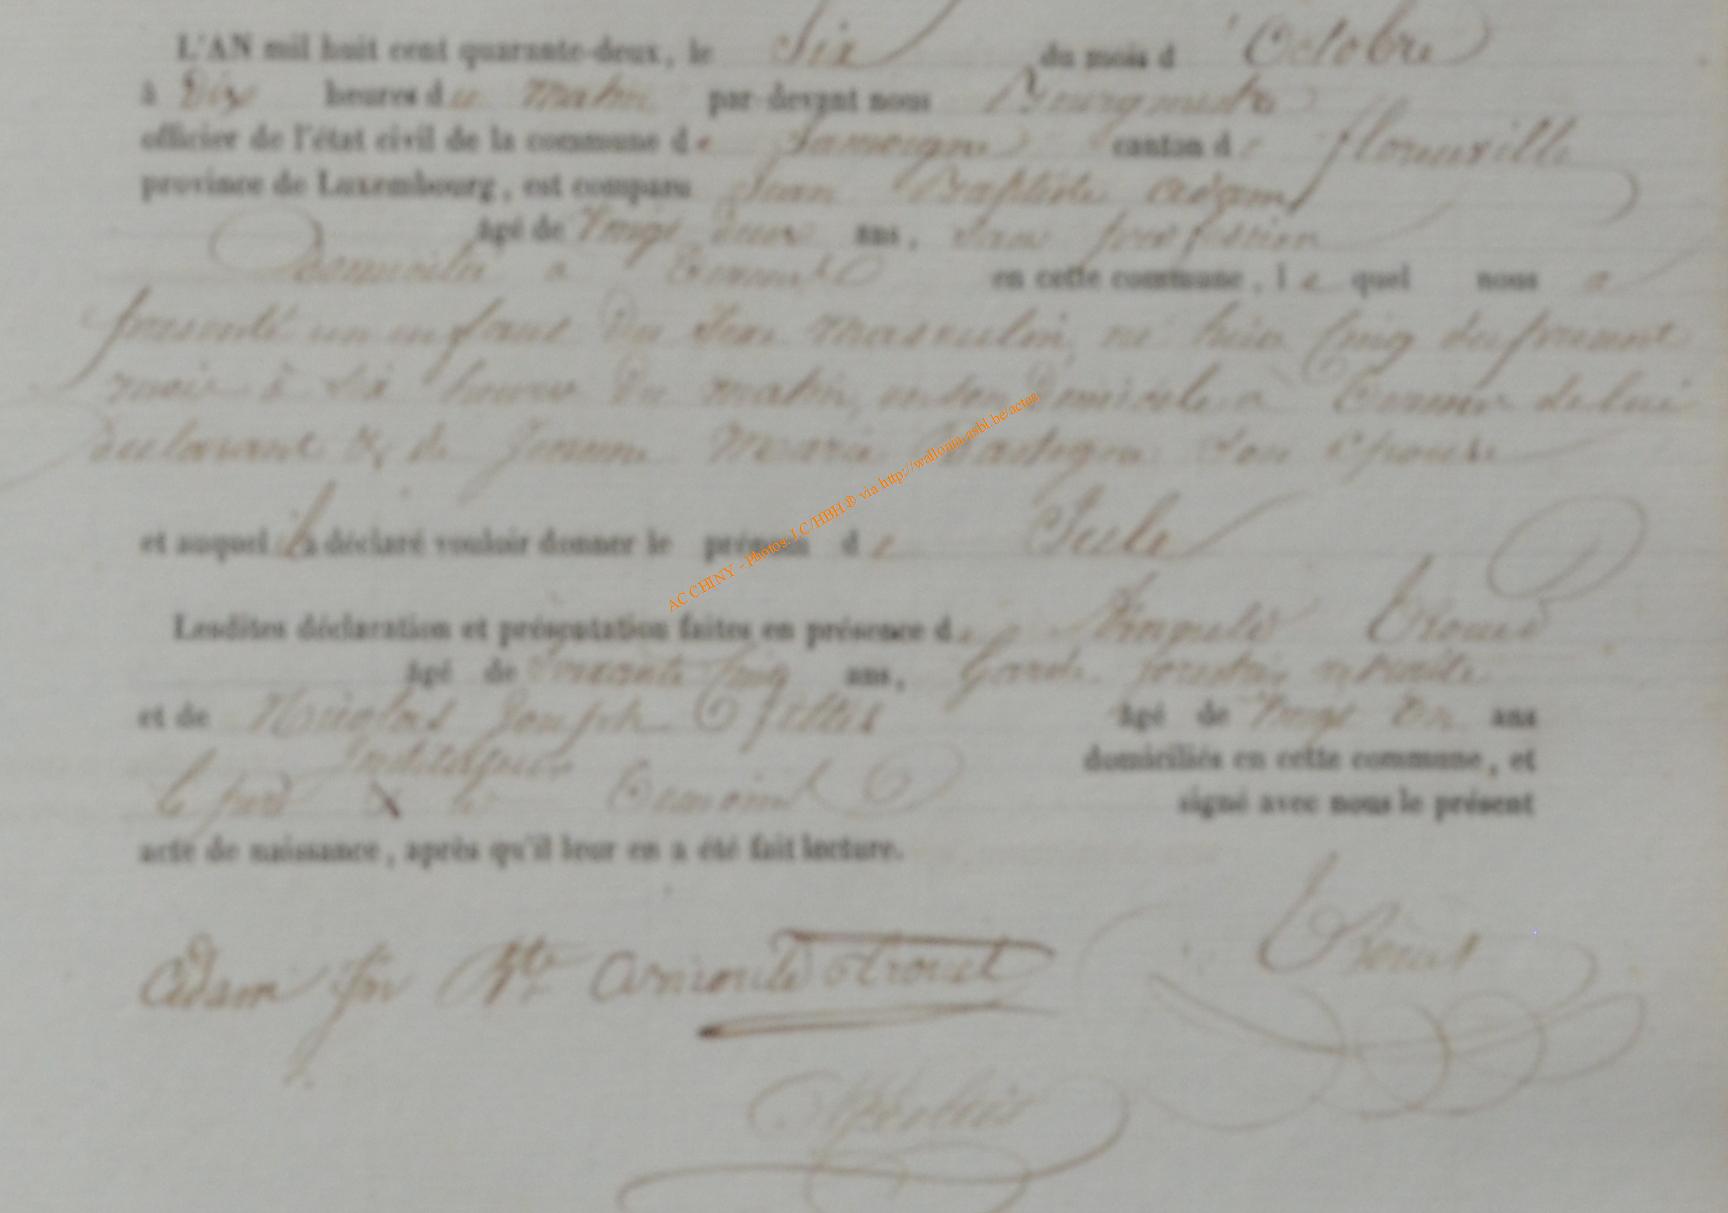 L'AN mil huit cent quarante-deux, le Six du mois d'Octobre
à Dix heures du matin par-devant nous Bourgmestre
officier de l'état civil de la commune de Jamoigne canton de florenville
province de Luxembourg, est comparu Jean Baptiste adam
âgé de Vingt deux ans, Sans profession
Domicilié a en cette commune, lequel nous a
presenté un enfant du Sexe masculin, né hier Cinq du present
mois à Six heures du matin, en son Domicile a de lui
declarant & de Jeanne Marie son Epouse
et auquel il a déclaré vouloir donner le prénom de Jule
Lesdites déclaration et présentation faites en présence de
âgé de Soixante Cinq ans, Garde forestier retraité
et de Nicolas Joseph âgé de Vingt ans
domiciliés en cette commune, et
signé avec nous le présent
acte de naissance, après qu'il leur en a été fait lecture.
adam Jn Bte
AC CHINY - Photos: LC/HBH ® via http://wallonia.asbl.be/actes